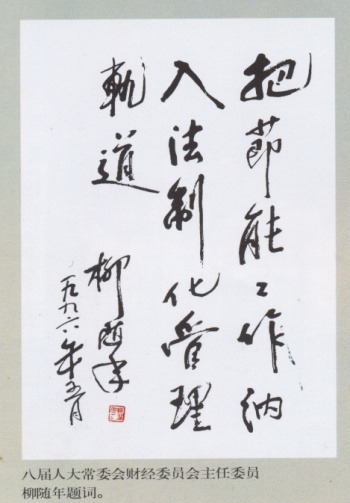 把节能工作纳
入法制化管理
軌道
柳随年
一九九六年五月
八届人大常委会财经委员会主任委员
柳随年题词。